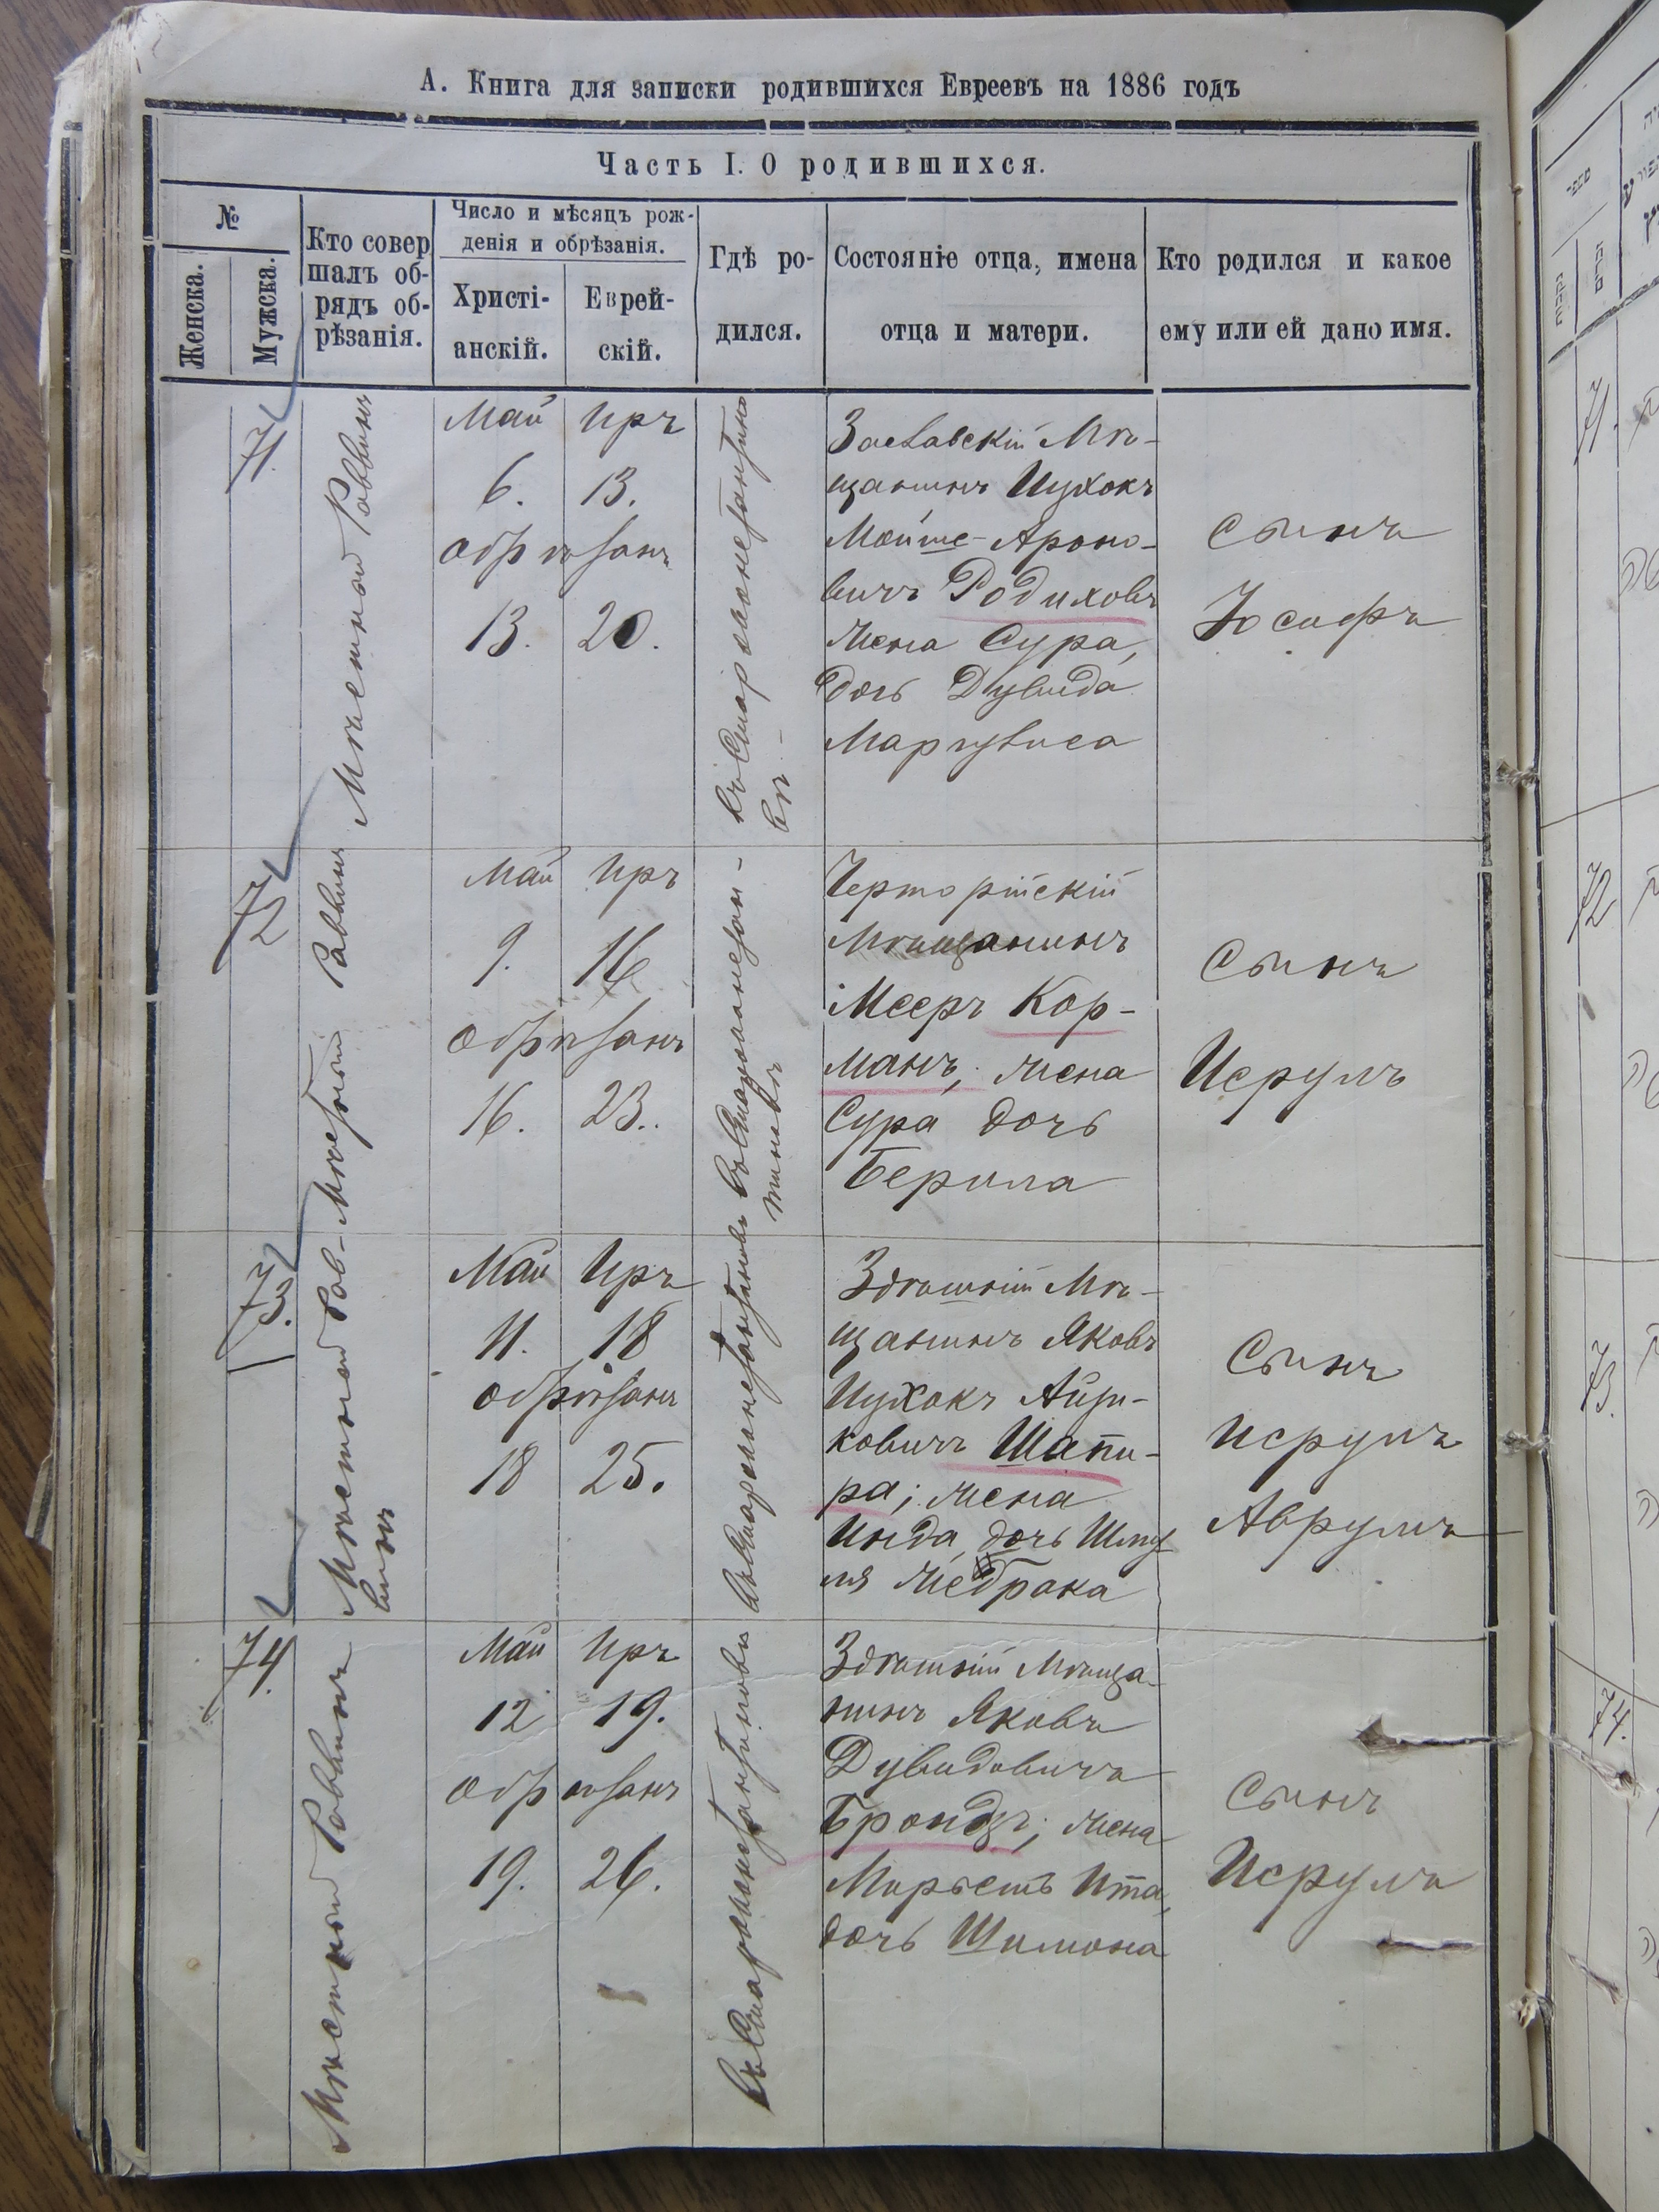 А. Книга для записки родившихся Евреевъ на 1886 годъ
Часть I. О родившихся.
№
Женска.
Мужска.
Кто совер
шалъ об-
рядъ об-
рѣзанія.
Число и мѣсяцъ рож-
денія и обрѣзанія.
Христі-
анскій.
Еврей-
скій.
Гдѣ ро-
дился.
Состояніе отца, имена
отца и матери.
Кто родился и какое
ему или ей дано имя.
71.
Мѣстный Раввинъ
Май
6.
обрѣзанъ
13.
Иръ
13.
20.
въ Староконстантино-
вѣ
Заславскій Мѣ-
щанинъ Ицхокъ
Мойше-Ароно-
вичъ Родиховъ
жена Сура,
дочь Дувида
Маргулиса
Сынъ
Іосифъ
72
Мѣстный Раввинъ
Май
9.
обрѣзанъ
16.
Иръ
16
23.
въ Староконстан-
тиновѣ
Черторійскій
Мѣщанинъ
Мееръ Кор-
манъ, жена
Сура дочь
Берила
Сынъ
Исрулъ
73.
Мѣстный Рав-
винъ
Май
11.
обрѣзанъ
18
Иръ
18
25.
въ Староконстантиновѣ
Здѣшній Мѣ-
щанинъ Яковъ
Ицхокъ Айзи-
ковичъ Шапи-
ра; жена
Инда, дочь Шму
ля
Сынъ
Исрулъ
Аврумъ
74.
Мѣстный Раввинъ
Май
12
обрѣзанъ
19.
Иръ
19.
26.
въ Староконстантиновѣ
Здѣшній Мѣща-
нинъ Яковъ
Дувидовичъ
Брондзъ; жена
Марьемъ Ита,
дочь Шимона
Сынъ
Исрулъ
71.
72
73.
74.